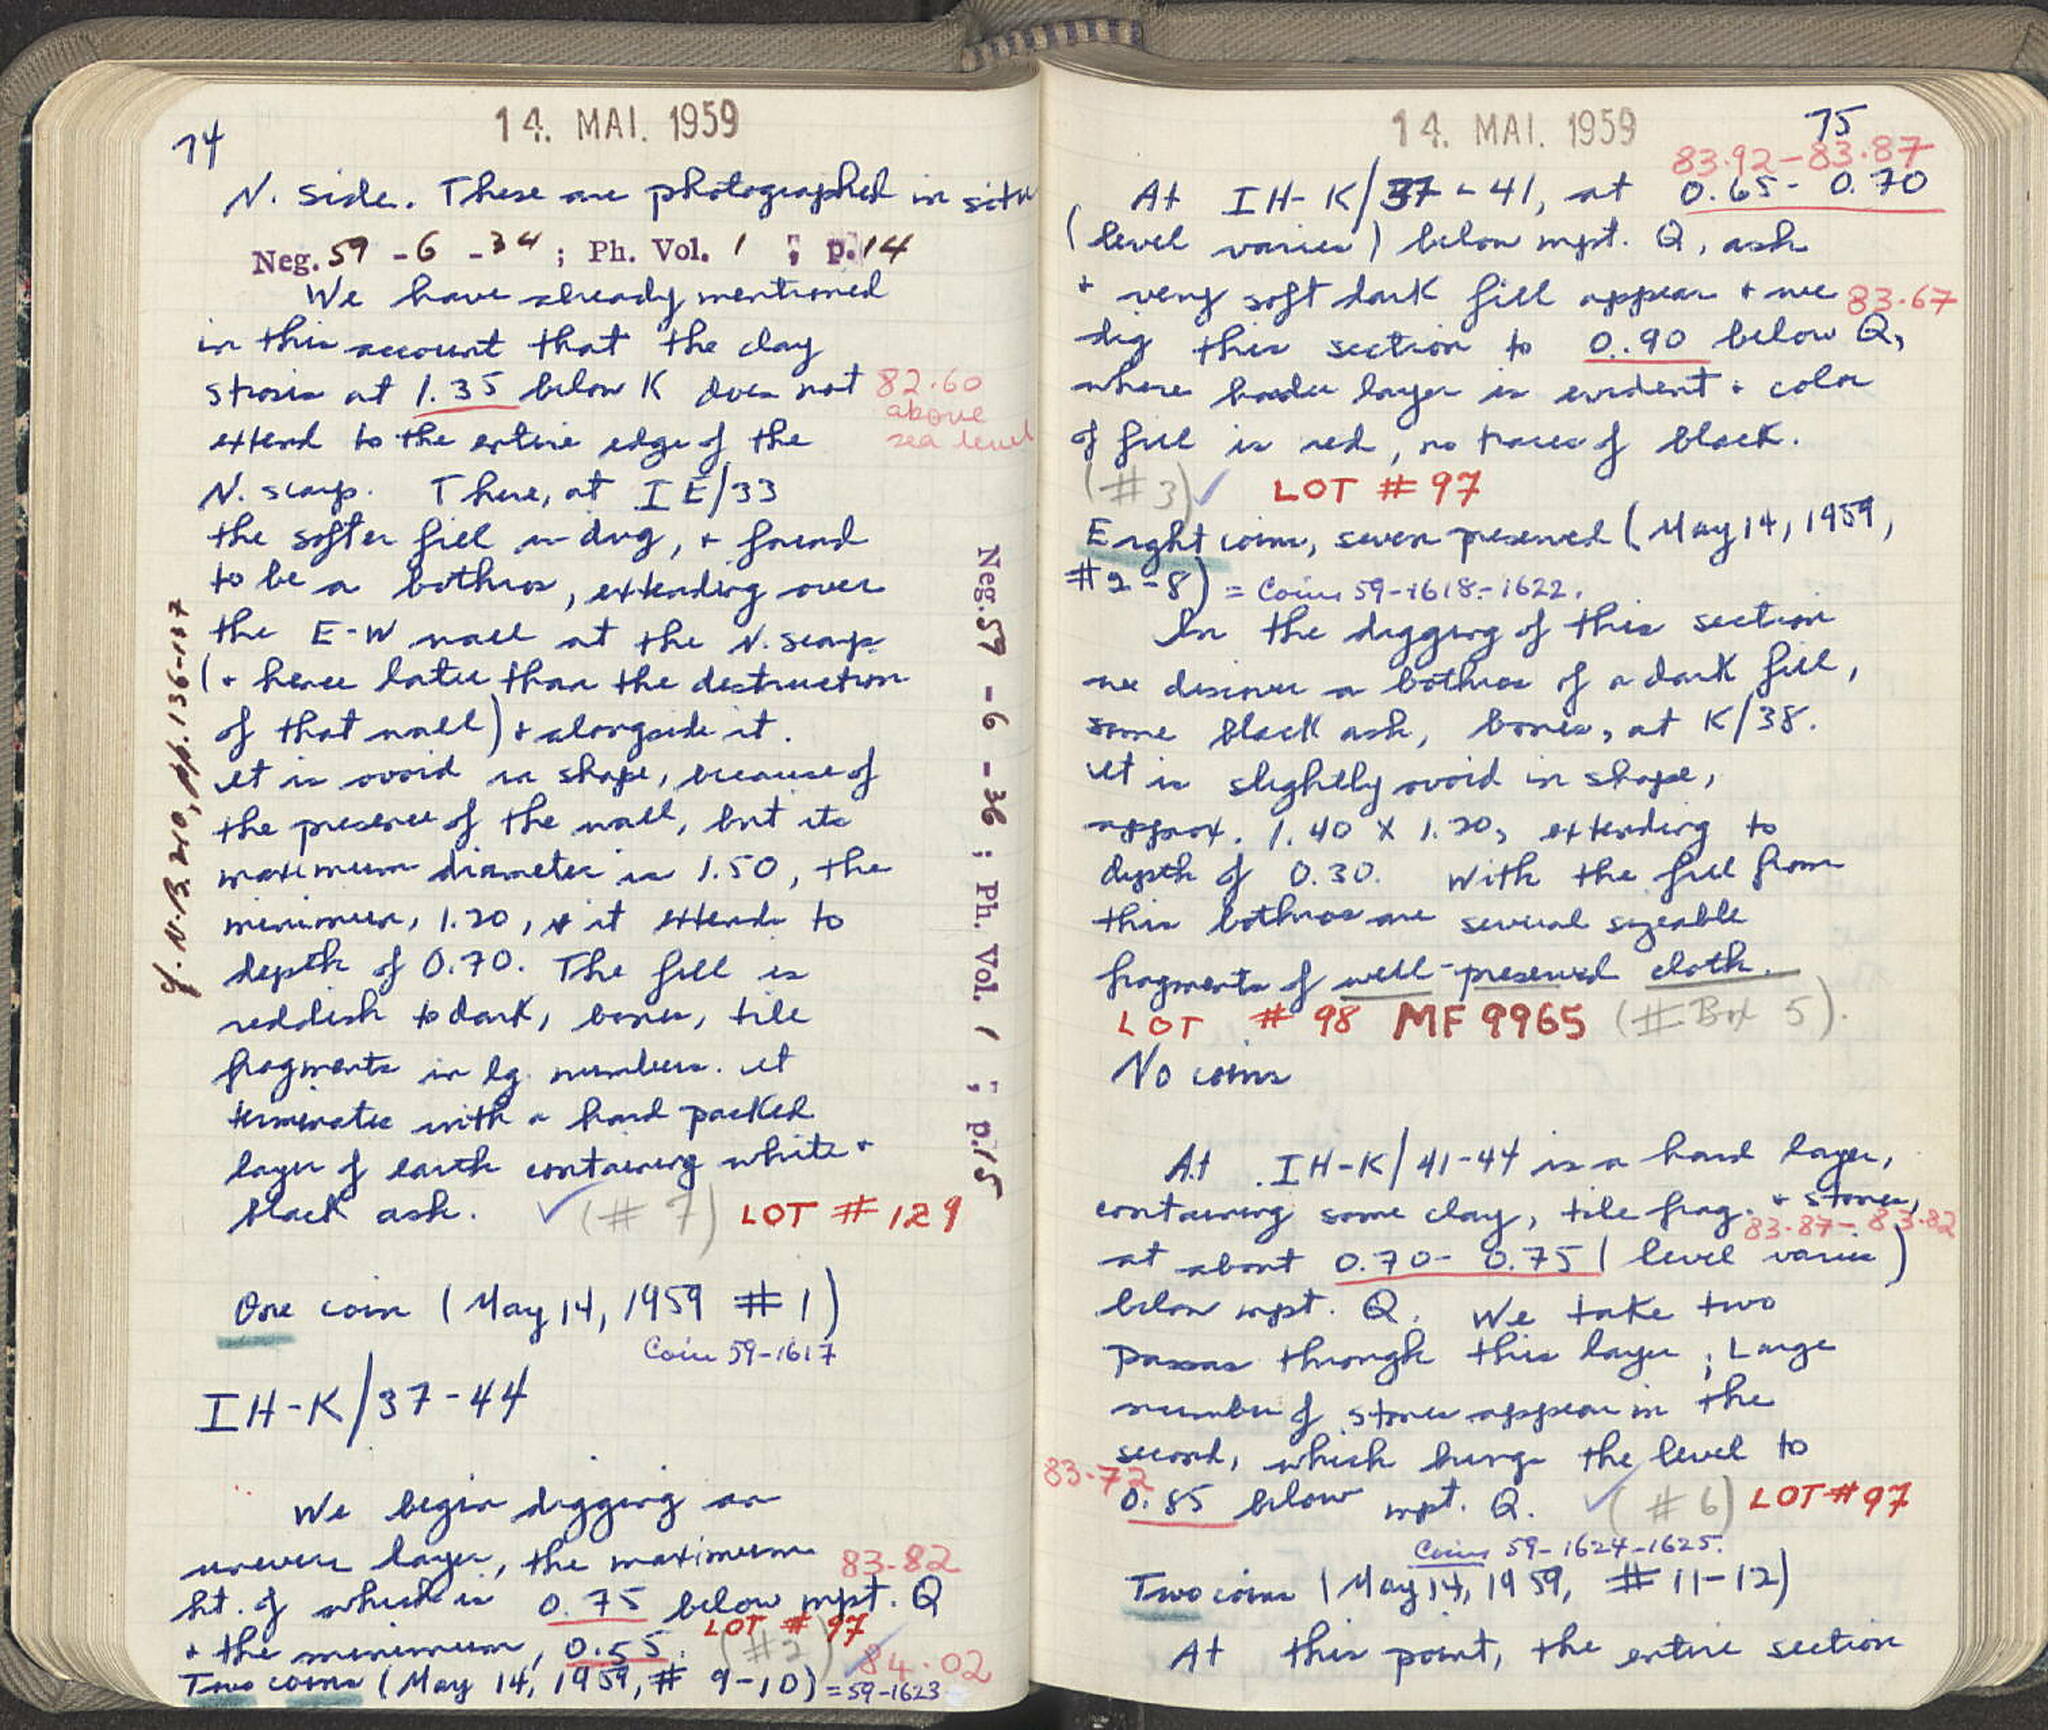 14. MAI. 1959
74
N. side. These are photographed in situ
Neg. 59 - 6 - 34 ; Ph. Vol. 1 ; p. 14
We have already mentioned
in this account that the clay
strosis at 1.35 below K does not
82.60
above
sea level
extend to the entire edge of the
N. scarp. There, at IE/33
the softer fill is dug, + found
to be a bothros, extending over
the E-W wall at the N. scarp
(+ hence later than the destruction
of that wall) + alongside it.
It is ovoid in shape, because of
the presence of the wall, but its
maximum diameter is 1.50, the
minimum, 1.20, + it extends to
depth of 0.70. The fill is
reddish to dark, bones, tile
fragments in lg. numbers. It
terminates with a hard packed
layer of earth containing white +
black ash. (# 7) LOT # 129
cf. N.B. 210, pp. 136-137
Neg. 59 - 6 - 36 ; Ph. Vol. 1 ; p. 15
One coin (May 14, 1959 # 1)
Coin 59-1617
IH-K/37-44
We begin digging an
uneven layer, the maximum
83.82
ht. of which is 0.75 below mpt. Q
LOT # 97
+ the minimum, 0.55. (#2) 84.02
Two coins (May 14, 1959, # 9-10) = 59-1623
14. MAI. 1959
75
83.92-83.87
At IH-K/37-41, at 0.65-0.70
(level varies) below mpt. Q, ash
+ very soft dark fill appear + we
83.67
dig this section to 0.90 below Q,
where harder layer is evident + color
of fill is red, no traces of black.
(#3) LOT # 97
Eight coins, seven preserved (May 14, 1959,
#2-8) = Coins 59-1618-1622.
In the digging of this section
we discover a bothros of a dark fill,
some black ash, bones, at K/38.
It is slightly ovoid in shape,
approx. 1.40 x 1.20, extending to
depth of 0.30. With the fill from
this bothros are several sizeable
fragments of well-preserved cloth.
LOT # 98 MF 9965 (# Box 5).
No coins
At IH-K/41-44 is a hard layer,
containing some clay, tile frag. + stones,
83.87-83.82
at about 0.70-0.75 (level varies)
below mpt. Q. We take two
passes through this layer; Large
number of stones appear in the
second, which brings the level to
83.72
0.85 below mpt. Q. (#6) LOT # 97
Coins 59-1624-1625.
Two coins (May 14, 1959, # 11-12)
At this point, the entire section